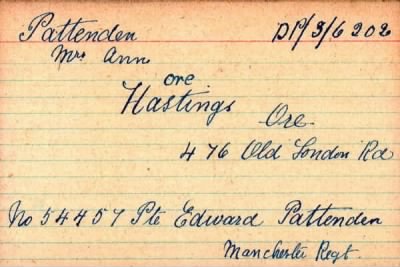 Pattenden DP/3/6202
Mrs Ann
ore
Hastings
Ore
476 Old London Rd
No 54457 Pte Edward Pattenden
Manchester Regt.